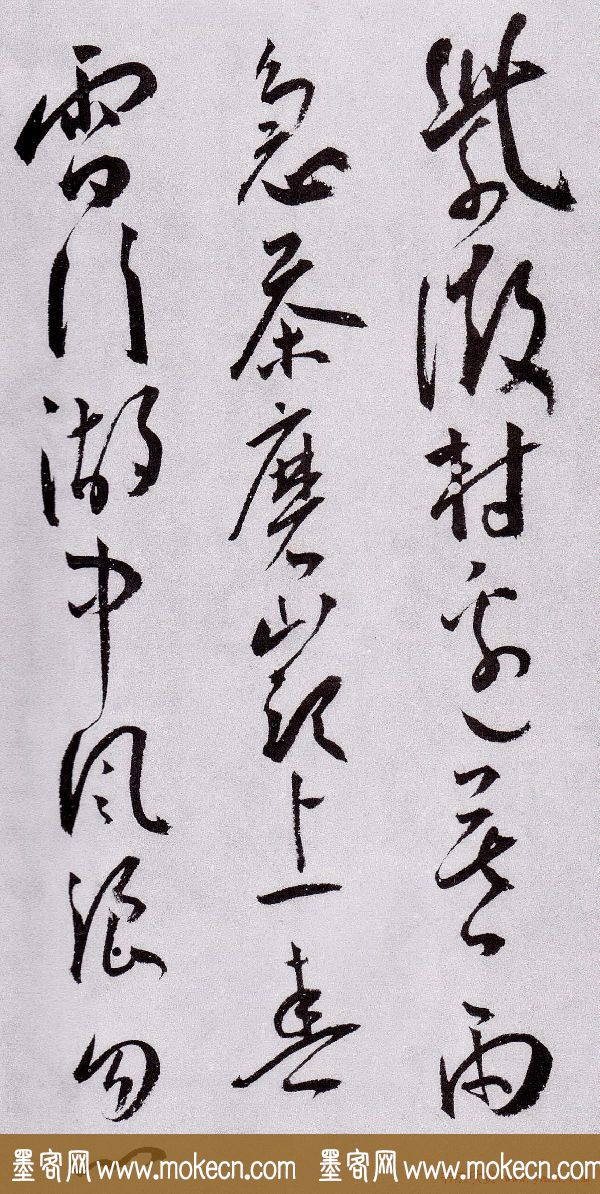 紫微村邊暮雨
急茶磨嶺上春
雲行湖中風浪勿
墨客网 www.mokecn.com 墨客网 www.mokecn.com